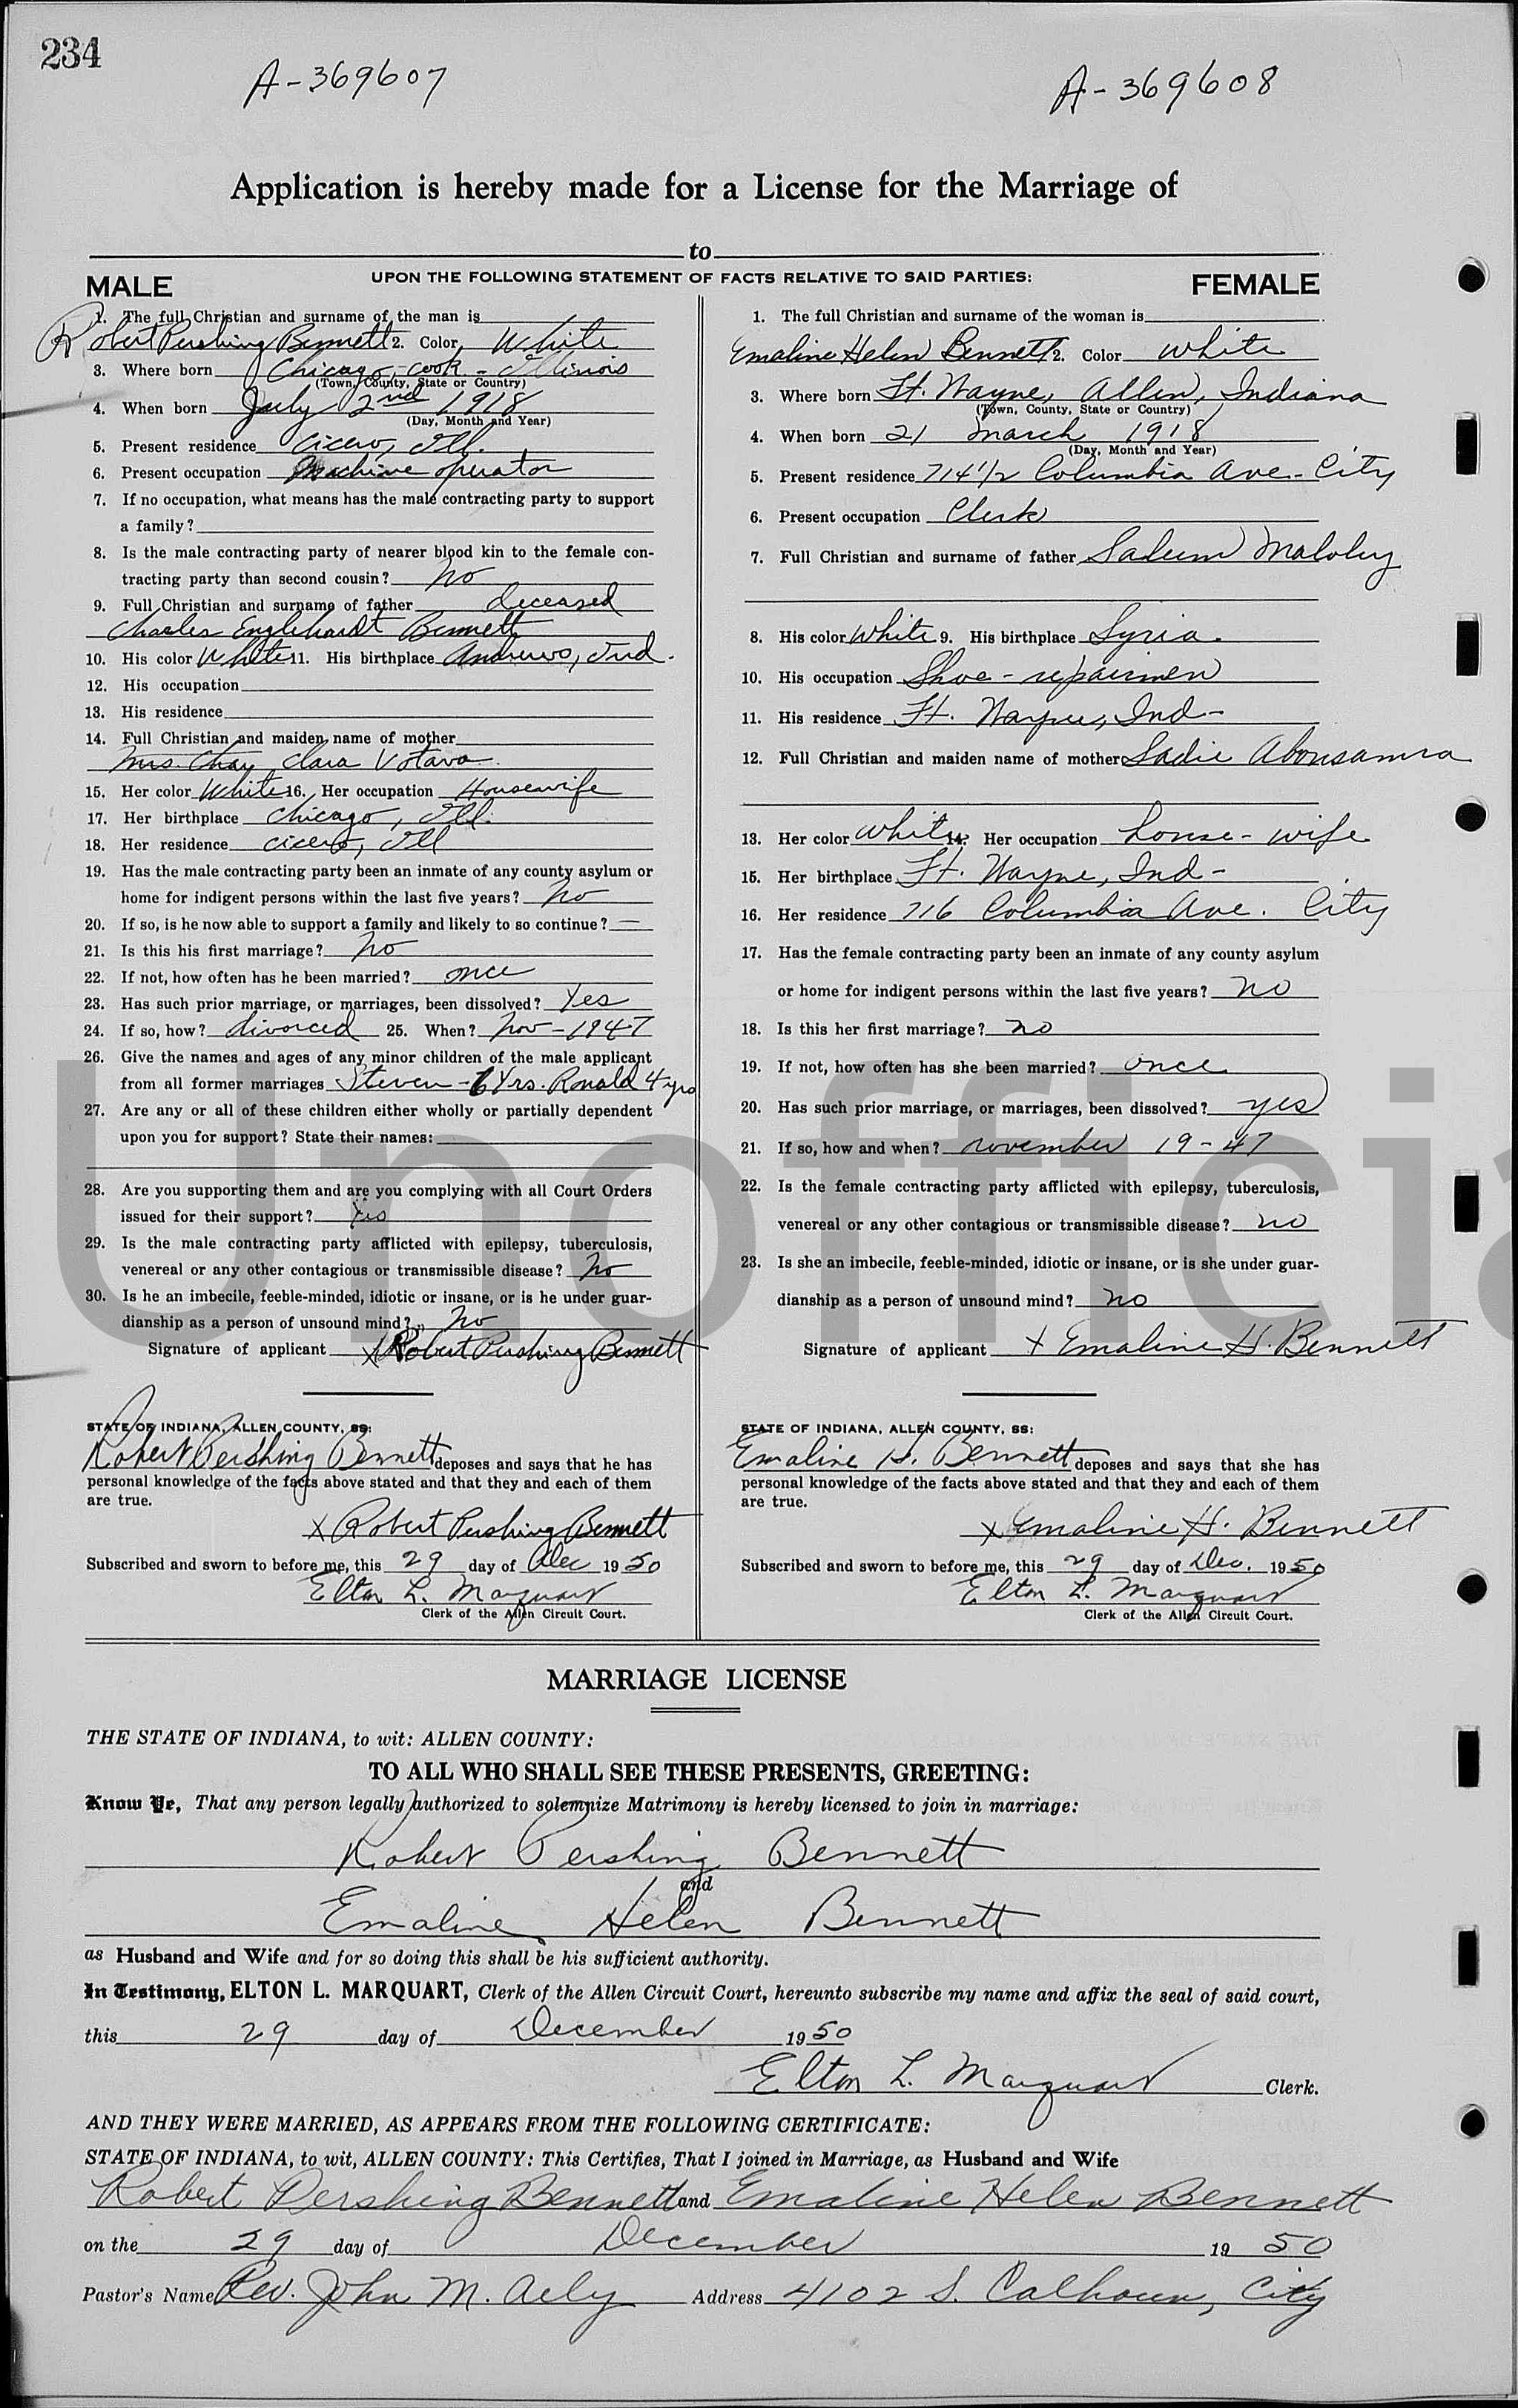 234
A-369607 A-369608
Application is hereby made for a License for the Marriage of
to
UPON THE FOLLOWING STATEMENT OF FACTS RELATIVE TO SAID PARTIES:
MALE
1. The full Christian and surname of the man is
Robert Pershing Bennett 2. Color White
3. Where born Chicago, Cook - Illinois
(Town, County, State or Country)
4. When born July 2nd 1918
(Day, Month and Year)
5. Present residence Cicero, Ill.
6. Present occupation Machine operator
7. If no occupation, what means has the male contracting party to support
a family?
8. Is the male contracting party of nearer blood kin to the female con-
tracting party than second cousin? No
9. Full Christian and surname of father deceased
Charles Englehardt Bennett
10. His color White 11. His birthplace Andrews, Ind.
12. His occupation
13. His residence
14. Full Christian and maiden name of mother
Mrs. Clara Votava
15. Her color White 16. Her occupation Housewife
17. Her birthplace Chicago, Ill.
18. Her residence Cicero, Ill
19. Has the male contracting party been an inmate of any county asylum or
home for indigent persons within the last five years? No
20. If so, is he now able to support a family and likely to so continue? —
21. Is this his first marriage? No
22. If not, how often has he been married? once
23. Has such prior marriage, or marriages, been dissolved? Yes
24. If so, how? divorced 25. When? Nov - 1947
26. Give the names and ages of any minor children of the male applicant
from all former marriages Steven - 6 Yrs. Ronald 4 yrs
27. Are any or all of these children either wholly or partially dependent
upon you for support? State their names:
28. Are you supporting them and are you complying with all Court Orders
issued for their support? Yes
29. Is the male contracting party afflicted with epilepsy, tuberculosis,
venereal or any other contagious or transmissible disease? No
30. Is he an imbecile, feeble-minded, idiotic or insane, or is he under guar-
dianship as a person of unsound mind? No
Signature of applicant X Robert Pershing Bennett
STATE OF INDIANA, ALLEN COUNTY, SS:
Robert Pershing Bennett deposes and says that he has
personal knowledge of the facts above stated and that they and each of them
are true.
X Robert Pershing Bennett
Subscribed and sworn to before me, this 29 day of Dec 1950
Elton L. Marquart
Clerk of the Allen Circuit Court.
FEMALE
1. The full Christian and surname of the woman is
Emaline Helen Bennett 2. Color White
3. Where born Ft. Wayne, Allen, Indiana
(Town, County, State or Country)
4. When born 21 March 1918
(Day, Month and Year)
5. Present residence 714 1/2 Columbia Ave - City
6. Present occupation Clerk
7. Full Christian and surname of father Saleem Maloley
8. His color White 9. His birthplace Syria.
10. His occupation Shoe - repairmen
11. His residence Ft. Wayne, Ind -
12. Full Christian and maiden name of mother Sadie Abousamra
13. Her color White 14. Her occupation house - wife
15. Her birthplace Ft. Wayne, Ind -
16. Her residence 716 Columbia Ave. City
17. Has the female contracting party been an inmate of any county asylum
or home for indigent persons within the last five years? no
18. Is this her first marriage? no
19. If not, how often has she been married? once
20. Has such prior marriage, or marriages, been dissolved? yes
21. If so, how and when? november 19-47
22. Is the female contracting party afflicted with epilepsy, tuberculosis,
venereal or any other contagious or transmissible disease? no
23. Is she an imbecile, feeble-minded, idiotic or insane, or is she under guar-
dianship as a person of unsound mind? no
Signature of applicant X Emaline H. Bennett
STATE OF INDIANA, ALLEN COUNTY, SS:
Emaline H. Bennett deposes and says that she has
personal knowledge of the facts above stated and that they and each of them
are true.
X Emaline H. Bennett
Subscribed and sworn to before me, this 29 day of Dec. 1950
Elton L. Marquart
Clerk of the Allen Circuit Court.
Unofficia
MARRIAGE LICENSE
THE STATE OF INDIANA, to wit: ALLEN COUNTY:
TO ALL WHO SHALL SEE THESE PRESENTS, GREETING:
Know Ye, That any person legally authorized to solemnize Matrimony is hereby licensed to join in marriage:
Robert Pershing Bennett
and
Emaline Helen Bennett
as Husband and Wife and for so doing this shall be his sufficient authority.
In Testimony, ELTON L. MARQUART, Clerk of the Allen Circuit Court, hereunto subscribe my name and affix the seal of said court,
this 29 day of December 1950
Elton L. Marquart Clerk.
AND THEY WERE MARRIED, AS APPEARS FROM THE FOLLOWING CERTIFICATE:
STATE OF INDIANA, to wit, ALLEN COUNTY: This Certifies, That I joined in Marriage, as Husband and Wife
Robert Pershing Bennett and Emaline Helen Bennett
on the 29 day of December 1950
Pastor's Name Rev. John M. Aely Address 4102 S. Calhoun, City